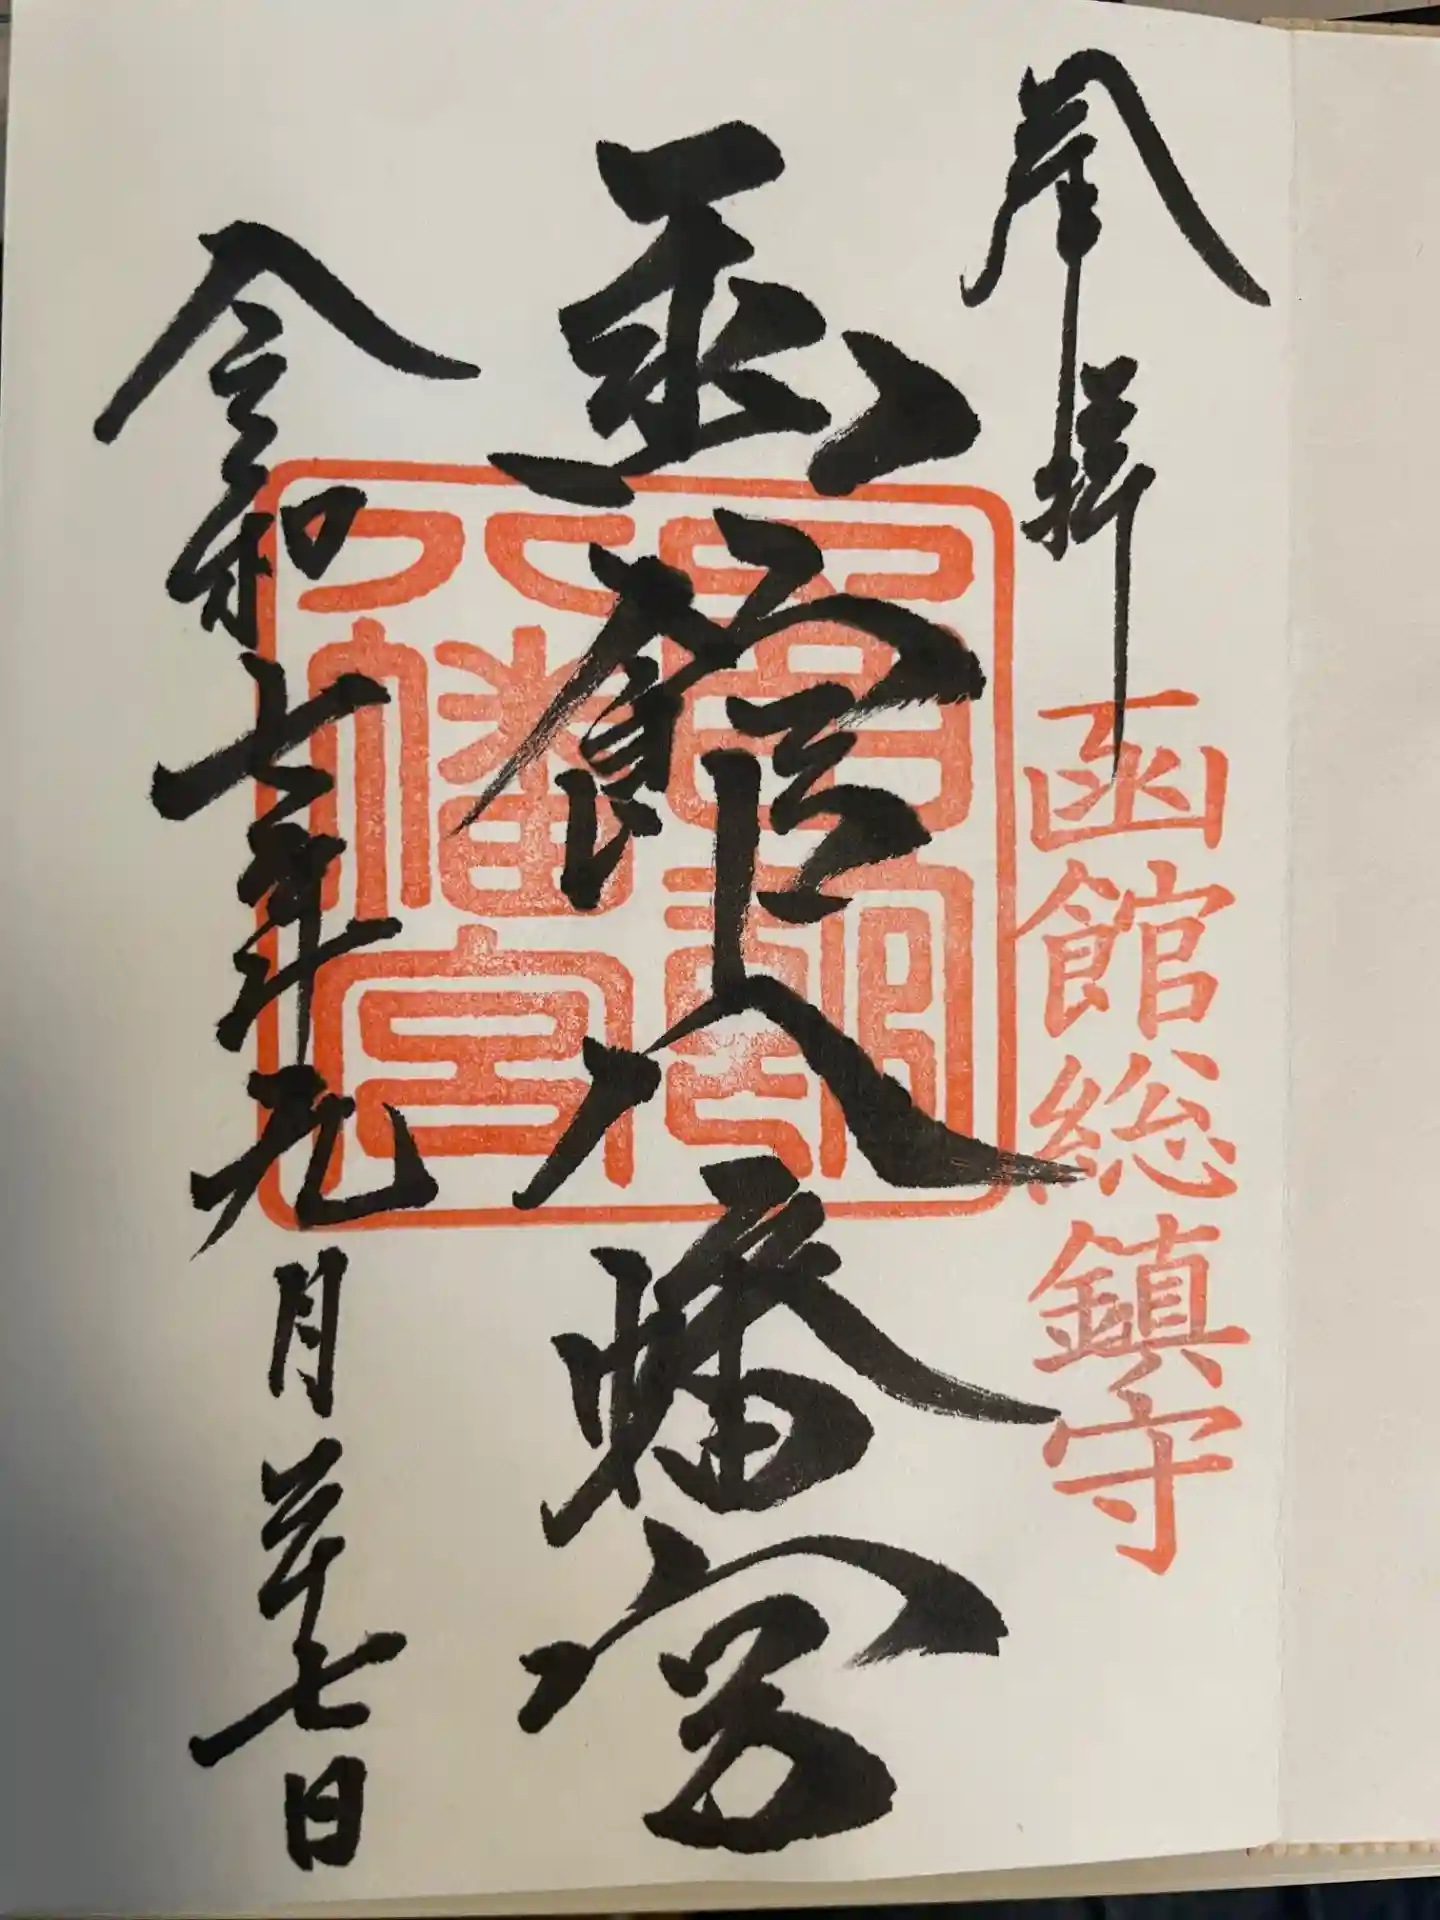 奉拝
函館総鎮守
函館八幡宮
八幡宮
令和七年九月二十七日